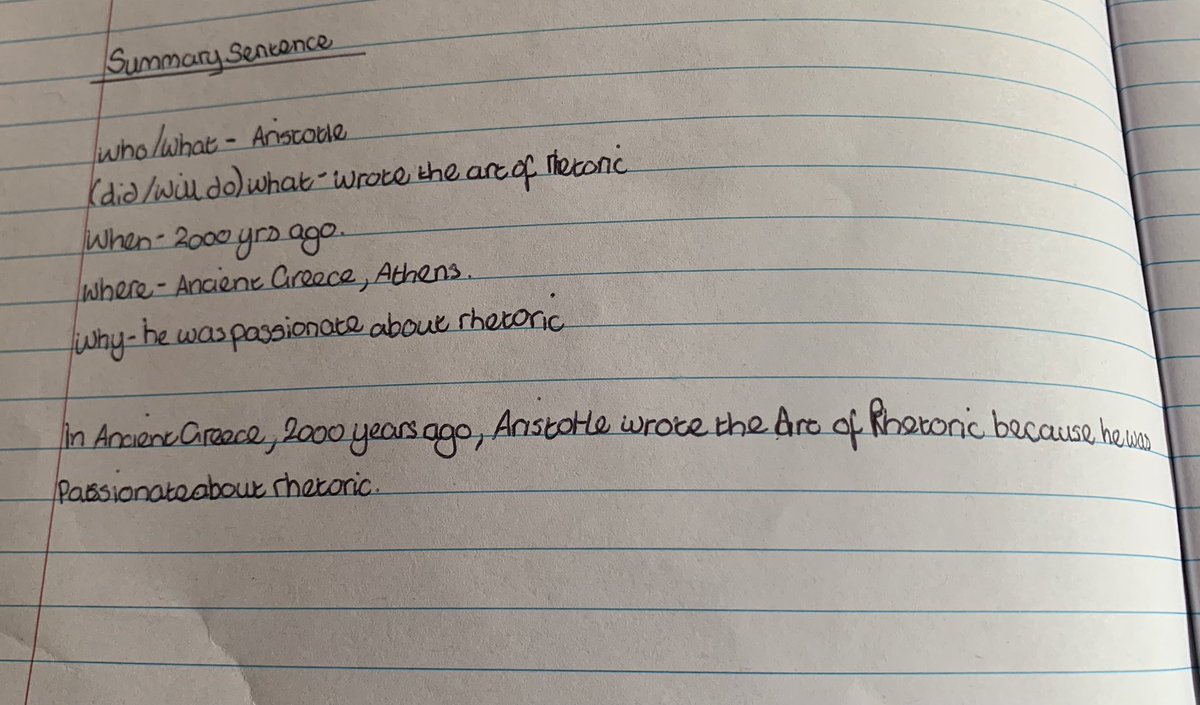 Summary Sentence
who/what - Aristotle
(did/will do) what - wrote the art of rhetoric
When - 2000 yrs ago.
where - Ancient Greece, Athens.
why - he was passionate about rhetoric
In Ancient Greece, 2000 years ago, Aristotle wrote the Art of Rhetoric because he was
passionate about rhetoric.